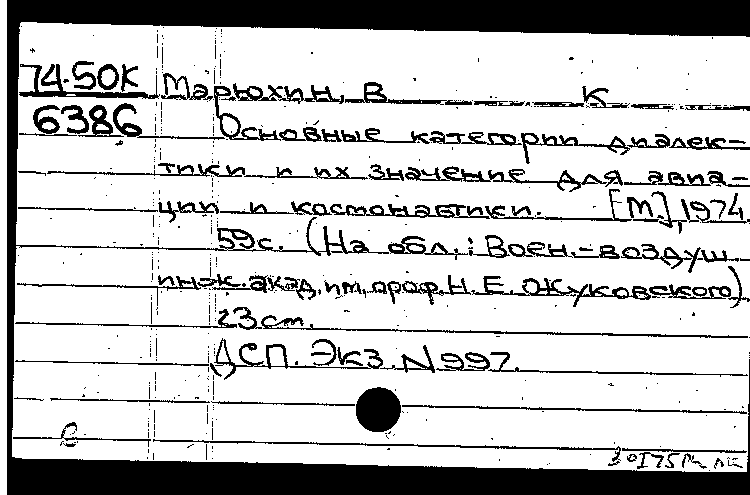 74-50К Марюхин, В К
6386 Основные категории диалек-
тики и их значение для авиа-
ции и костонавтики. [М.], 1974
59с. (На обл.: Воен.-воздуш
инж. акад. им. проф. Н. Е. Жуковского)
23 cm.
ДСП. Экз. N 997.